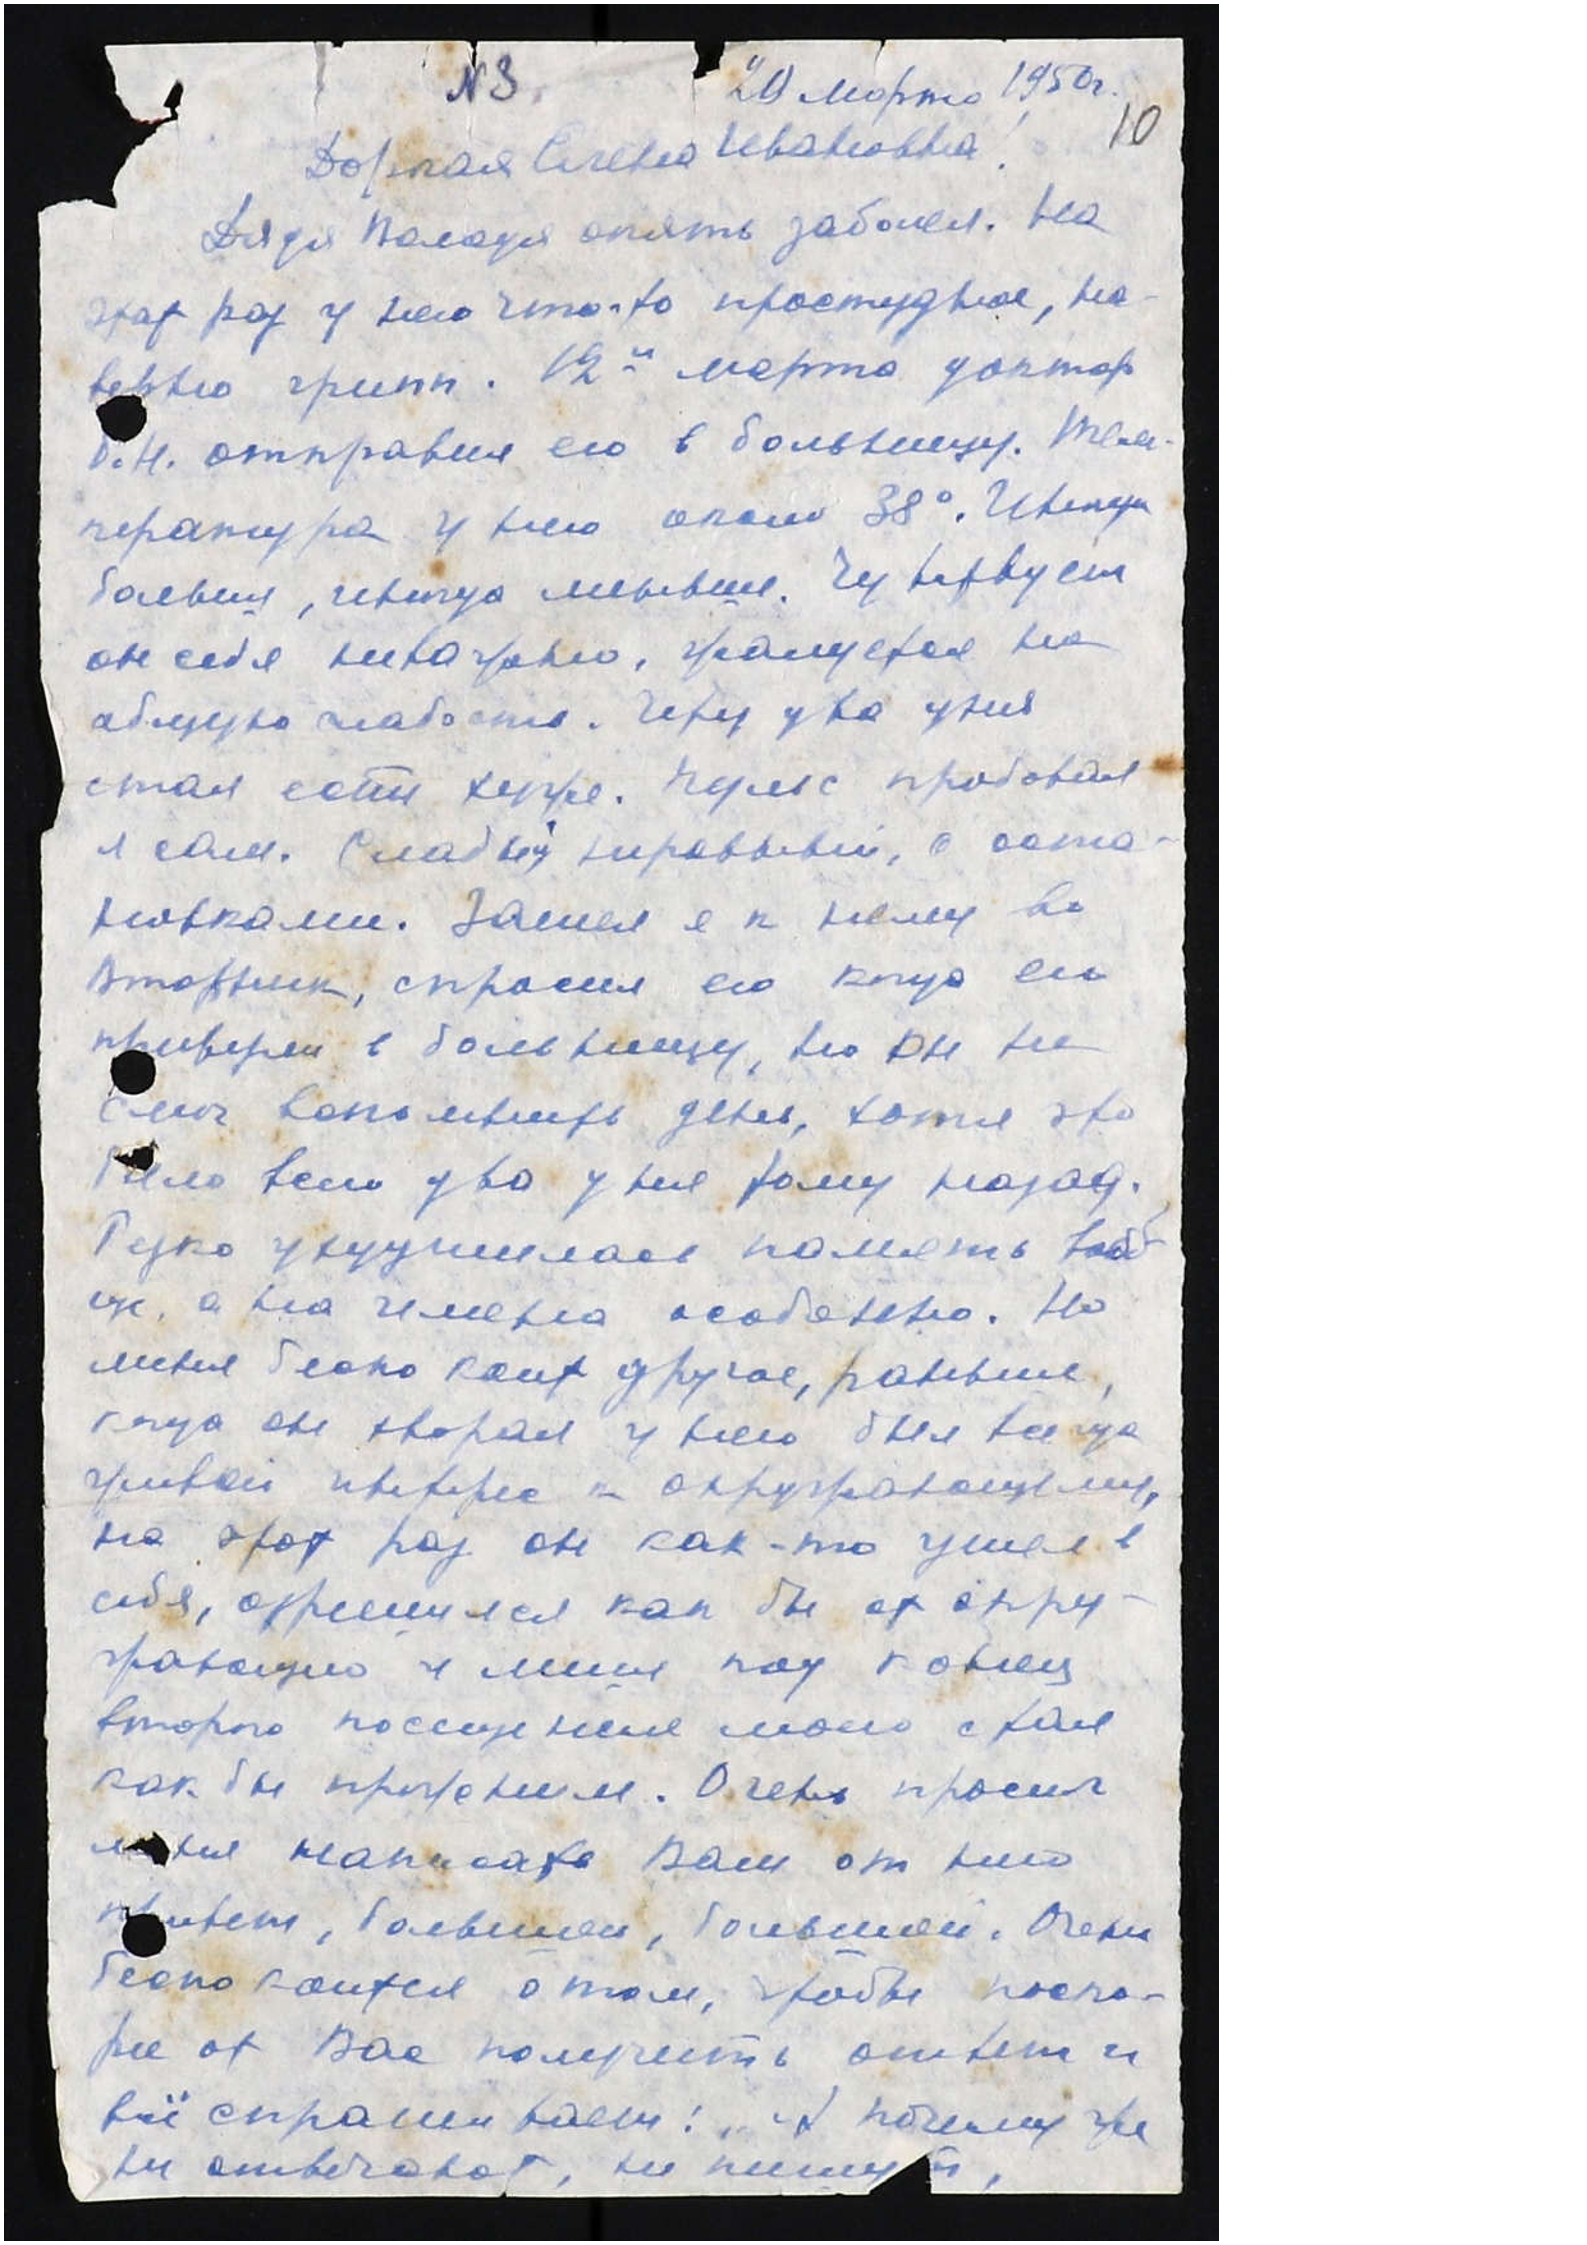 N 3.
20 марта 1950г.
10
Дорогая Елена Ивановна!
Дядя Володя опять заболел. На
этот раз у него что-то простудное, на-
верно грипп. 12го марта доктор
отправил его в больницу. Тем-
пература у него около 38°. Иногда
больше, иногда меньше. Чувствует
он себя неважно, жалуется на
общую слабость. Через два дня
стал есть хуже. Пульс пробовал
я сам. Слабый неровный, с оста-
новками. Зашел я к нему во
вторник, спросил его когда его
привезли в больницу, но он не
смог вспомнить день, хотя это
было всего два дня тому назад.
Резко ухудшилась память вооб-
ще, а на имена особенно. Но
меня беспокоит другое, раньше,
когда он хворал у него был всегда
живой интерес к окружающему,
на этот раз он как-то ушел в
себя, отрешился как бы от окру-
жающего и лишь под конец
второго посещения моего стал
как бы прежним. Очень просил
меня написать Вам от него
привет, большой, большой. Очень
беспокоится о том, чтобы поско-
рее от Вас получить ответ и
всё спрашивает: „А почему же
не отвечают, не пишут,